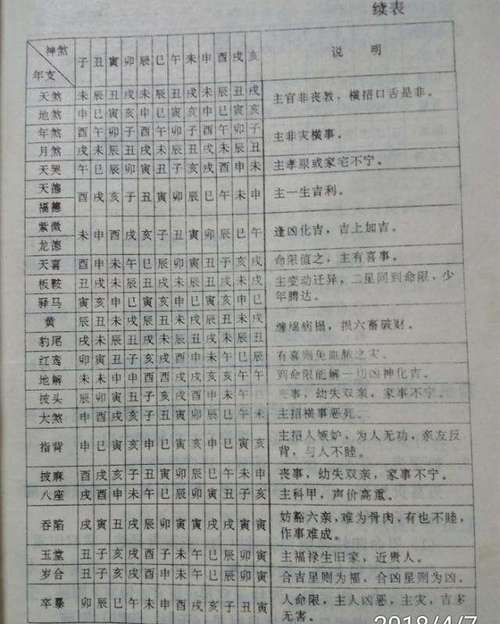 续表
神煞 年支 子 丑 寅 卯 辰 巳 午 未 申 酉 戌 亥 说 明
天煞 未 辰 丑 戌 未 辰 丑 戌 未 辰 丑 戌 主官非丧教，横招口舌是非。
地煞 申 巳 寅 亥 申 巳 寅 亥 申 巳 寅 亥
年煞 酉 午 卯 子 酉 午 卯 子 酉 午 卯 子 主非灾横事。
月煞 戌 未 辰 丑 戌 未 辰 丑 戌 未 辰 丑
天哭 午 巳 辰 卯 寅 丑 子 亥 戌 酉 申 未 主孝服或家宅不宁。
天德 福德 酉 戌 亥 子 丑 寅 卯 辰 巳 午 未 申 主一生吉利。
紫微 龙德 未 申 酉 戌 亥 子 丑 寅 卯 辰 巳 午 逢凶化吉，吉上加吉。
天喜 酉 申 未 午 巳 辰 卯 寅 丑 子 亥 戌 命限值之，主有喜事。
板鞍 丑 戌 未 辰 丑 戌 未 辰 丑 戌 未 辰 主变动迁异，二星同到命限，少
驿马 寅 亥 申 巳 寅 亥 申 巳 寅 亥 申 巳 年腾达。
黄 辰 丑 未 戌 辰 丑 未 戌
豹尾 戌 未 辰 丑 戌 未 辰 丑 戌 未 辰 丑 损六畜破财。
红鸾 卯 寅 丑 子 亥 戌 酉 申 未 午 巳 辰 有喜则免血脓之灾。
地解 未 未 申 申 酉 酉 戌 戌 亥 亥 午 午 到命限能解一切凶神化吉。
披头 辰 卯 寅 丑 子 亥 戌 酉 申 未 午 巳 丧事，幼失双亲，家事不宁。
大煞 申 酉 戌 亥 子 丑 寅 卯 辰 巳 午 未 主招横事恶死。
指背 申 巳 寅 亥 申 巳 寅 亥 申 巳 寅 亥 主招人嫉妒，为人无功，亲友反
背，与人不睦。
披麻 酉 戌 亥 子 丑 寅 卯 辰 巳 午 未 申 丧事，幼失双亲，家事不宁。
八座 戌 酉 申 未 午 巳 辰 卯 寅 丑 子 亥 主科甲，声价高重。
吞陷 戌 寅 丑 戌 辰 卯 寅 寅 戌 戌 寅 寅 妨豁六亲，难为骨肉，有也不睦，
作事难成。
玉堂 丑 子 亥 戌 酉 子 未 午 巳 辰 卯 寅 主福禄生旧家，近贵人。
岁合 丑 子 亥 戌 酉 申 未 午 巳 辰 卯 寅 合吉星则为福，合凶星则为凶。
卒暴 卯 辰 巳 午 未 申 酉 戌 亥 子 丑 寅 人命限，主人凶恶，主灾，吉多
无害。
2018/4/7